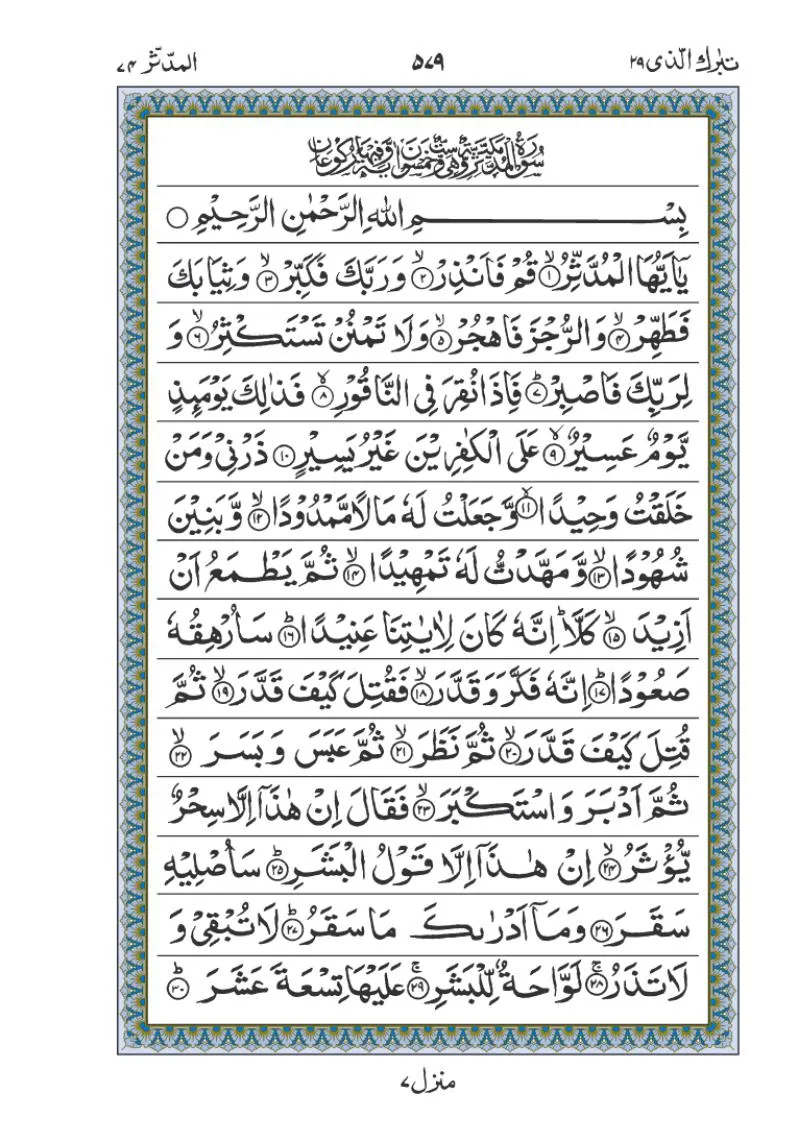 تبٰرك الّذی ۲۹
۵۷۹
المدّثّر ۷۴
سُوْرَةُ الْمُدَّثِّرِ مَكِّيَّةٌ وَّهِیَ سِتٌّ وَّخَمْسُوْنَ اٰيَةً وَّفِيْهَا رُكُوْعَانِ
بِسْمِ اللهِ الرَّحْمٰنِ الرَّحِيْمِ ○
يٰۤاَيُّهَا الْمُدَّثِّرُ ۙ﴿۱﴾ قُمْ فَاَنْذِرْ ۙ﴿۲﴾ وَرَبَّكَ فَكَبِّرْ ۙ﴿۳﴾ وَثِيَابَكَ
فَطَهِّرْ ۙ﴿۴﴾ وَالرُّجْزَ فَاهْجُرْ ۙ﴿۵﴾ وَلَا تَمْنُنْ تَسْتَكْثِرُ ۙ﴿۶﴾ وَ
لِرَبِّكَ فَاصْبِرْ ؕ﴿۷﴾ فَاِذَا نُقِرَ فِی النَّاقُوْرِ ۙ﴿۸﴾ فَذٰلِكَ يَوْمَئِذٍ
يَّوْمٌ عَسِيْرٌ ۙ﴿۹﴾ عَلَی الْكٰفِرِيْنَ غَيْرُ يَسِيْرٍ ﴿۱۰﴾ ذَرْنِیْ وَمَنْ
خَلَقْتُ وَحِيْدًا ۙ﴿۱۱﴾ وَّجَعَلْتُ لَهٗ مَالًا مَّمْدُوْدًا ۙ﴿۱۲﴾ وَّبَنِيْنَ
شُهُوْدًا ۙ﴿۱۳﴾ وَّمَهَّدْتُّ لَهٗ تَمْهِيْدًا ۙ﴿۱۴﴾ ثُمَّ يَطْمَعُ اَنْ
اَزِيْدَ ۙ﴿۱۵﴾ كَلَّا ؕ اِنَّهٗ كَانَ لِاٰيٰتِنَا عَنِيْدًا ؕ﴿۱۶﴾ سَاُرْهِقُهٗ
صَعُوْدًا ؕ﴿۱۷﴾ اِنَّهٗ فَكَّرَ وَقَدَّرَ ۙ﴿۱۸﴾ فَقُتِلَ كَيْفَ قَدَّرَ ۙ﴿۱۹﴾ ثُمَّ
قُتِلَ كَيْفَ قَدَّرَ ۙ﴿۲۰﴾ ثُمَّ نَظَرَ ۙ﴿۲۱﴾ ثُمَّ عَبَسَ وَبَسَرَ ۙ﴿۲۲﴾
ثُمَّ اَدْبَرَ وَاسْتَكْبَرَ ۙ﴿۲۳﴾ فَقَالَ اِنْ هٰذَاۤ اِلَّا سِحْرٌ
يُّؤْثَرُ ۙ﴿۲۴﴾ اِنْ هٰذَاۤ اِلَّا قَوْلُ الْبَشَرِ ؕ﴿۲۵﴾ سَاُصْلِيْهِ
سَقَرَ ﴿۲۶﴾ وَمَاۤ اَدْرٰىكَ مَا سَقَرُ ؕ﴿۲۷﴾ لَا تُبْقِیْ وَ
لَا تَذَرُ ۚ﴿۲۸﴾ لَوَّاحَةٌ لِّلْبَشَرِ ۚ﴿۲۹﴾ عَلَيْهَا تِسْعَةَ عَشَرَ ؕ﴿۳۰﴾
منزل ۷